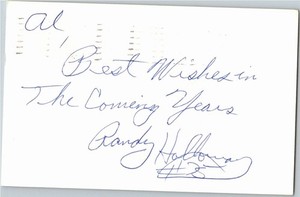 Al,
Best Wishes in
The Coming Years
Randy Holloway